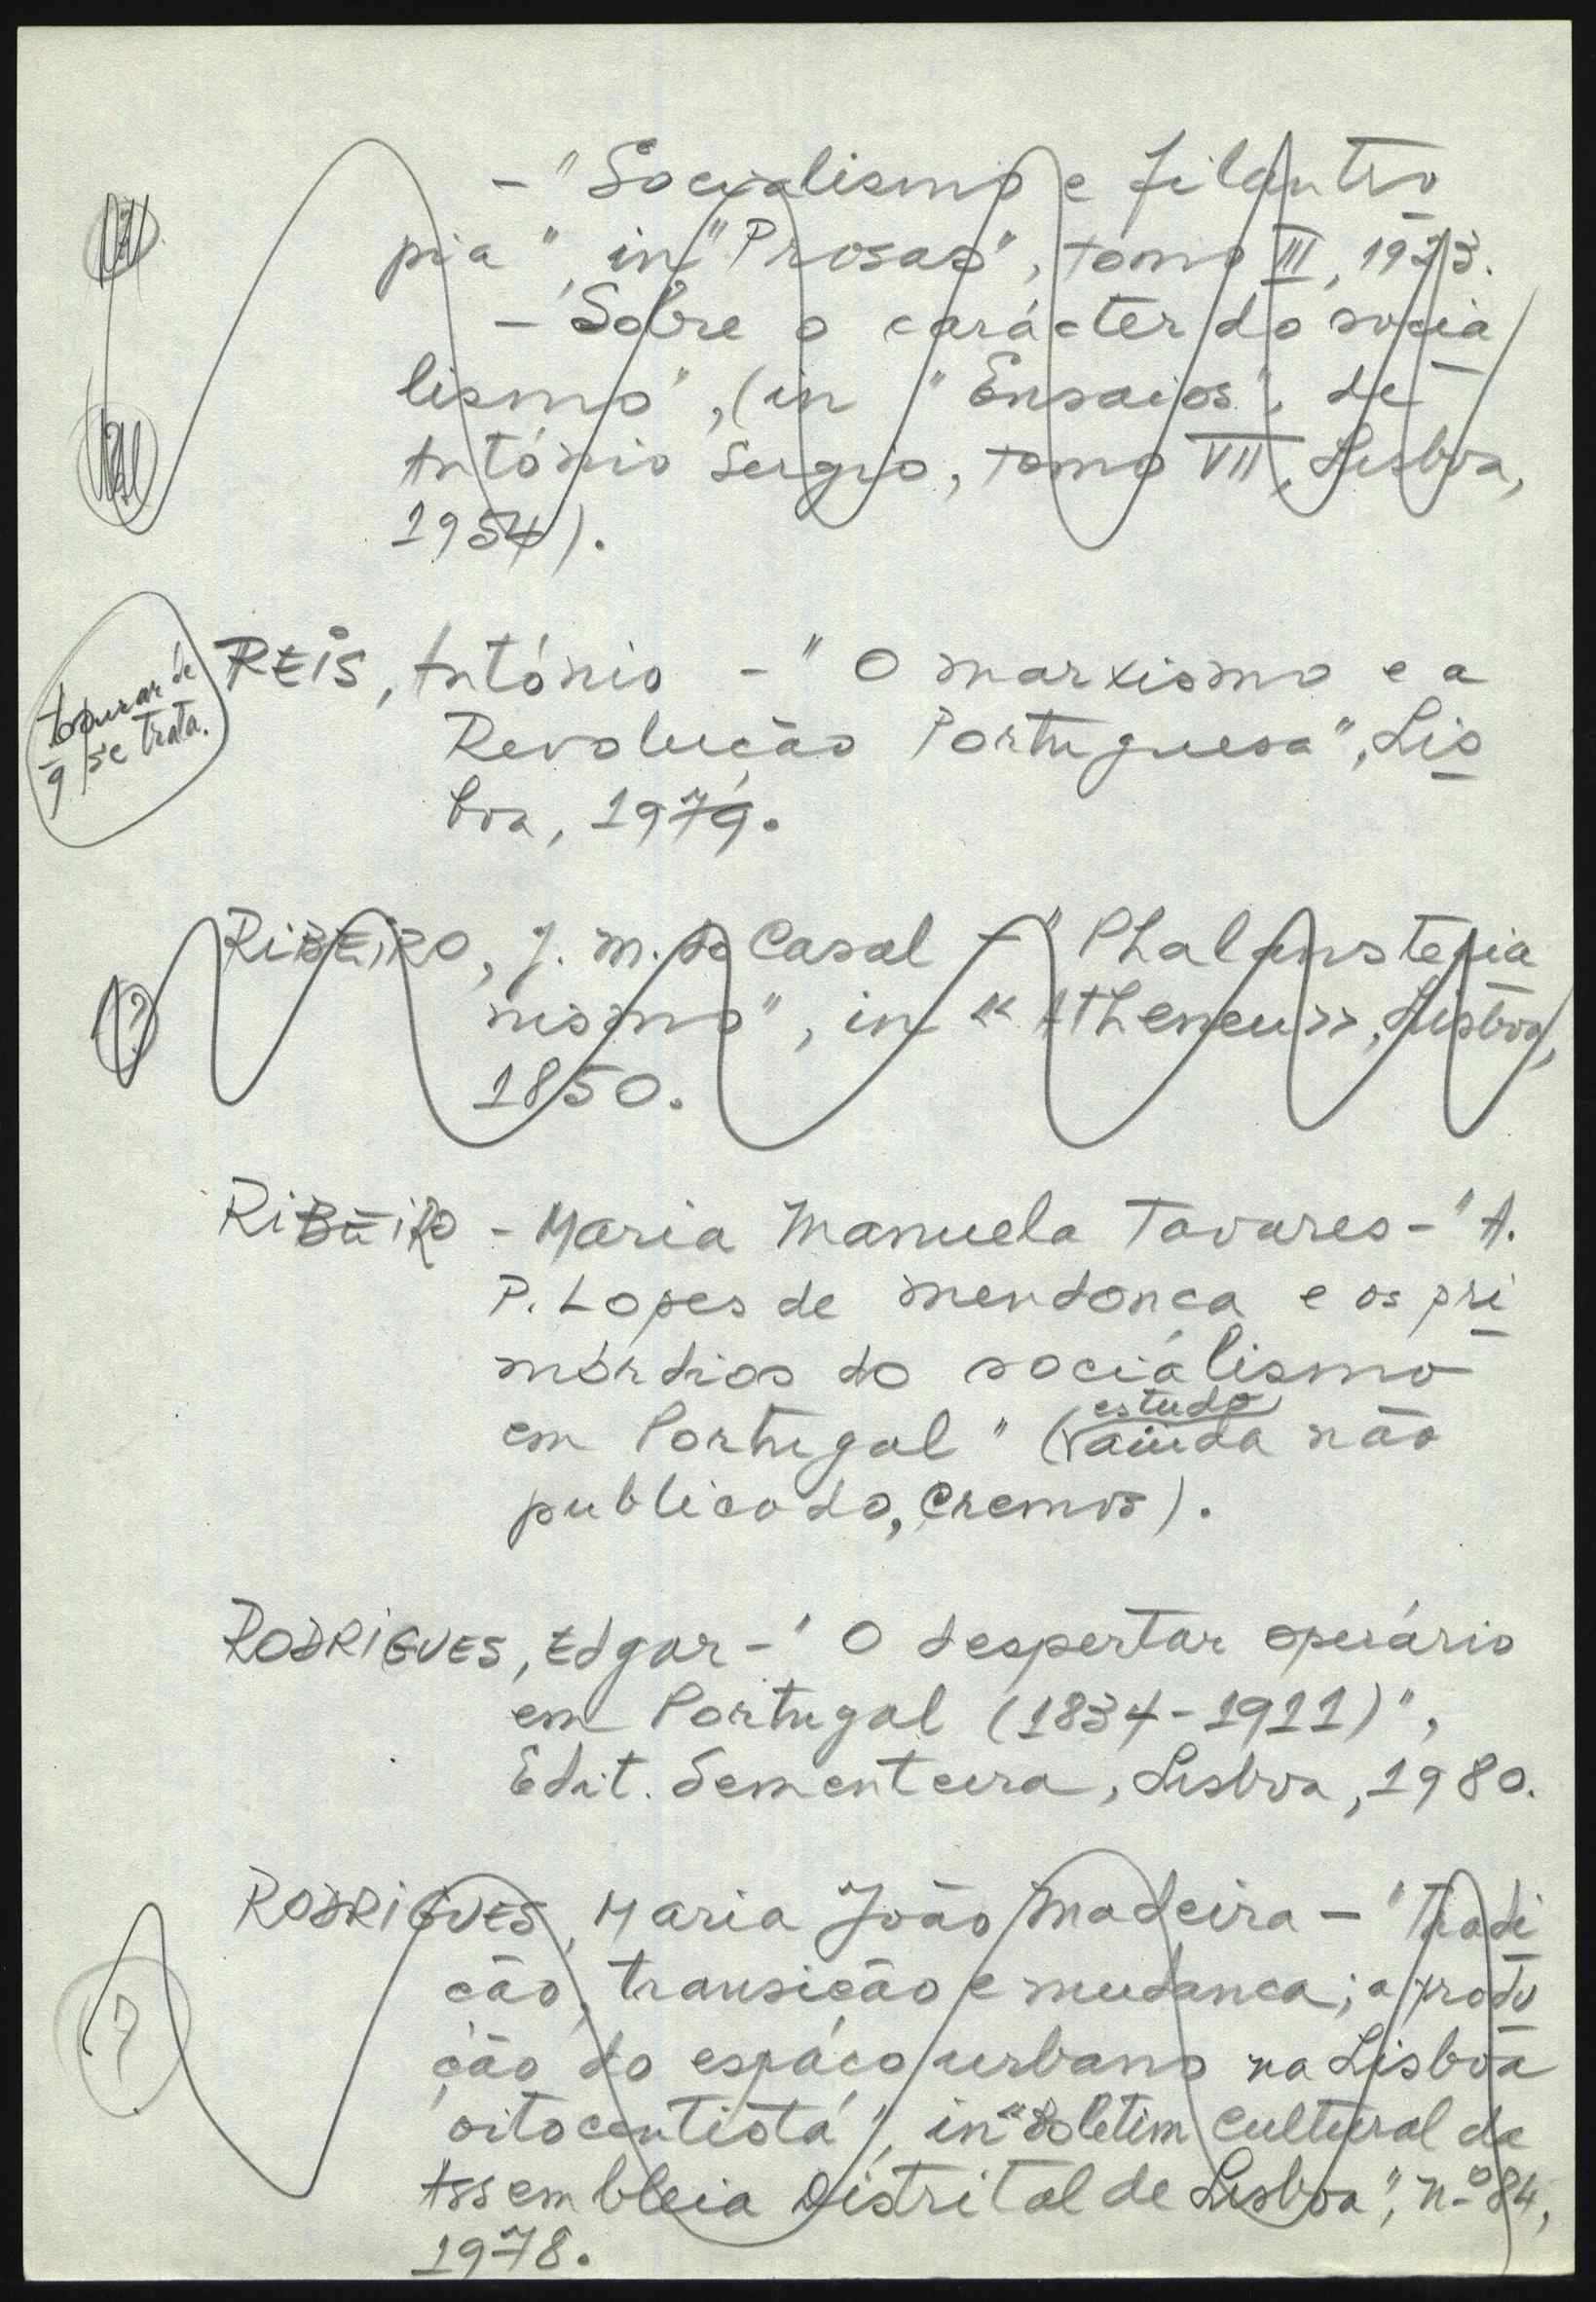 - "Socialismo e filantro
pia", in "Prosas", tomo III, 1923.
- "Sobre o carácter do socia
lismo", (in "Ensaios", de
António Sergio, tomo VII, Lisboa,
1954).
REIS, António - "O marxismo e a
Revolução Portuguesa", Lis
boa, 1979.
de
q se trata.
RIBEIRO, J. M. do Casal - "Phalansteria
nismo", in «Atheneu», Lisboa,
1850.
?
RIBEIRO - Maria Manuela Tavares - "A.
P. Lopes de Mendonça e os pri
mórdios do socialismo
em Portugal" (estudo ainda não
publicado, cremos).
RODRIGUES, Edgar - "O despertar operário
em Portugal (1834-1911)",
Edit. Sementeira, Lisboa, 1980.
RODRIGUES, Maria João Madeira - "Tradi
ção, transição e mudança; a produ
ção do espaço urbano na Lisboa
oitocentista", in "Boletim Cultural da
Assembleia Distrital de Lisboa", nº 84,
1978.
?